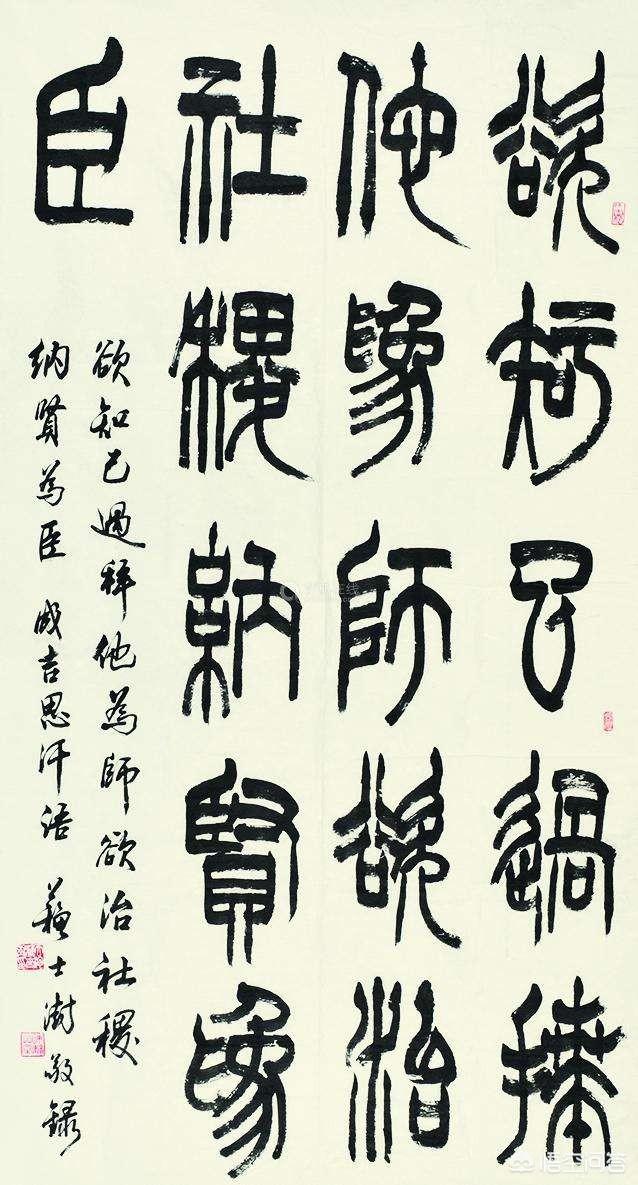 欲知己過拜
他為師欲治
社稷納賢為
臣
欲知己過拜他為師欲治社稷
納賢為臣 成吉思汗語 蘇士澍敬錄
悟空问答